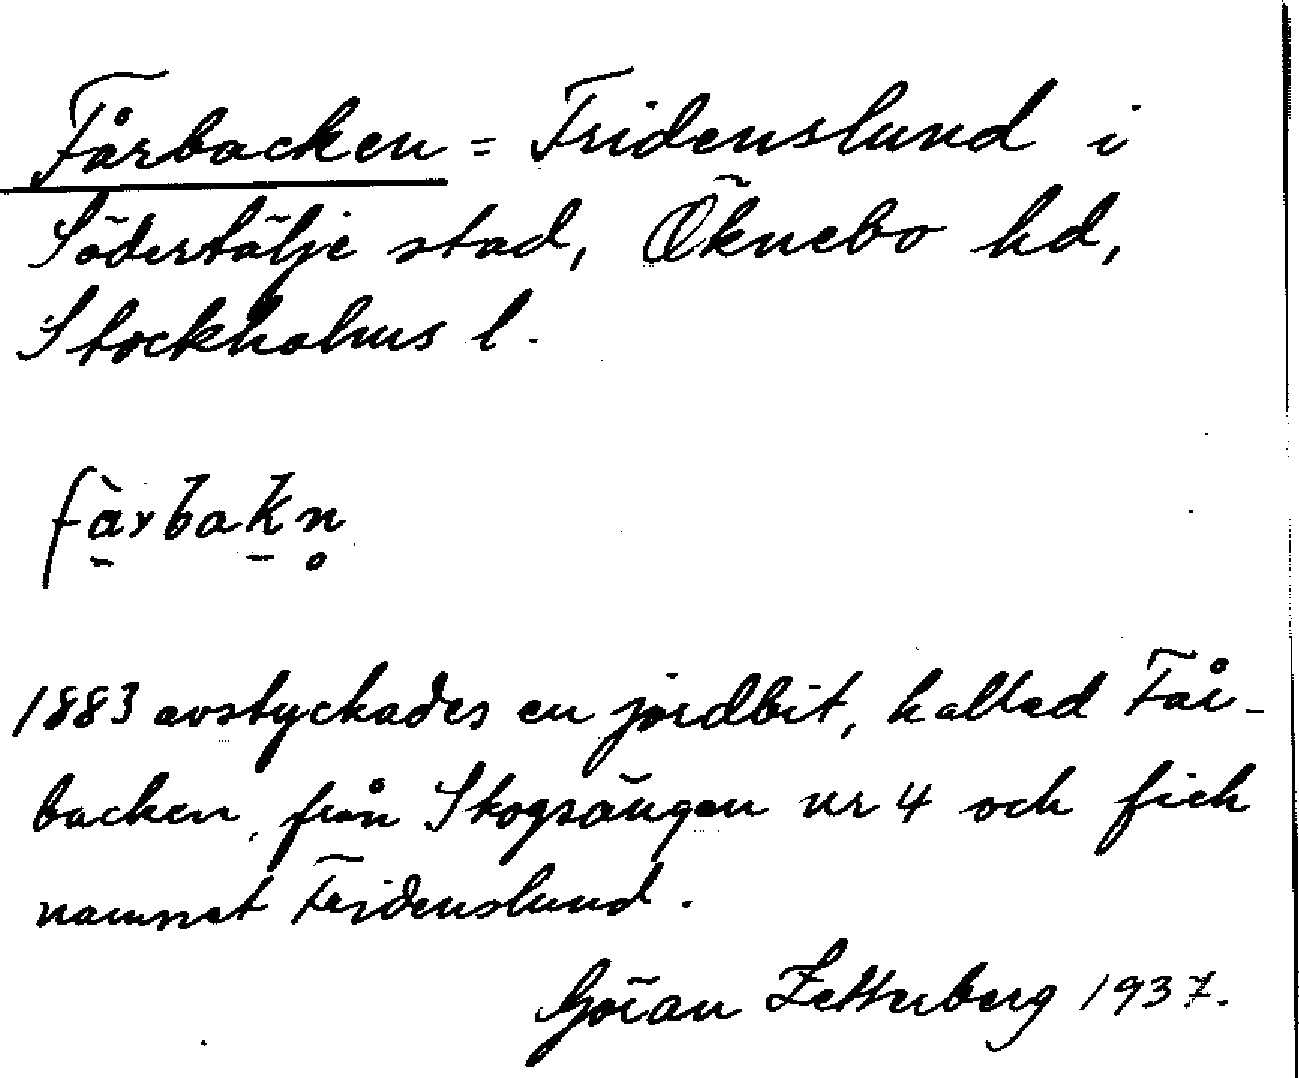 Fårbacken = Fridenslund i
Södertälje stad, Öknebo hd,
Stockholms l.
fàrbak̄n̥
1883 avstyckades en jordbit, kallad Får-
backen, från Skogsängen nr 4 och fick
namnet Fridenslund.
Göran Zetterberg 1937.